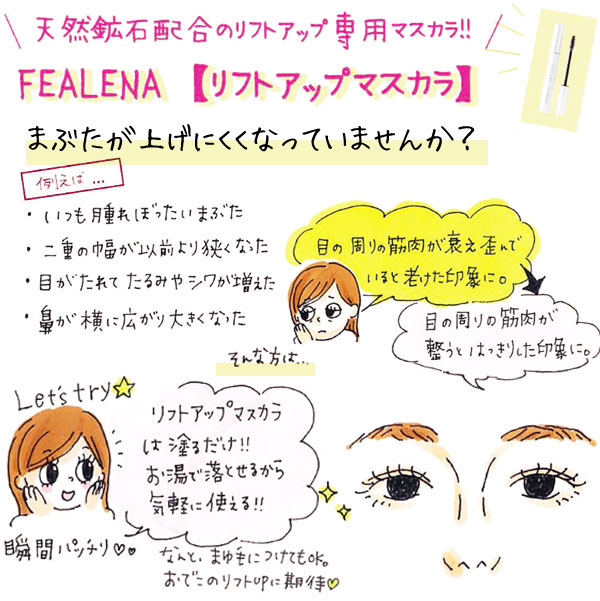 天然鉱石配合のリフトアップ専用マスカラ!!
FEALENA 【リフトアップマスカラ】
まぶたが上げにくくなっていませんか？
例えば…
・いつも腫れぼったいまぶた
・二重の幅が以前より狭くなった
・目がたれて たるみや シワが増えた
・鼻が横に広がり大きくなった
目の周りの筋肉が衰え歪んで
いると老けた印象に。
目の周りの筋肉が
整うとはっきりした印象に。
そんな方は…
Let's try
リフトアップマスカラ
は塗るだけ!!
お湯で落とせるから
気軽に使える!!
瞬間パッチリ♡♡
なんと、まゆ毛につけてもOK。
おでこのリフトUPに期待♡